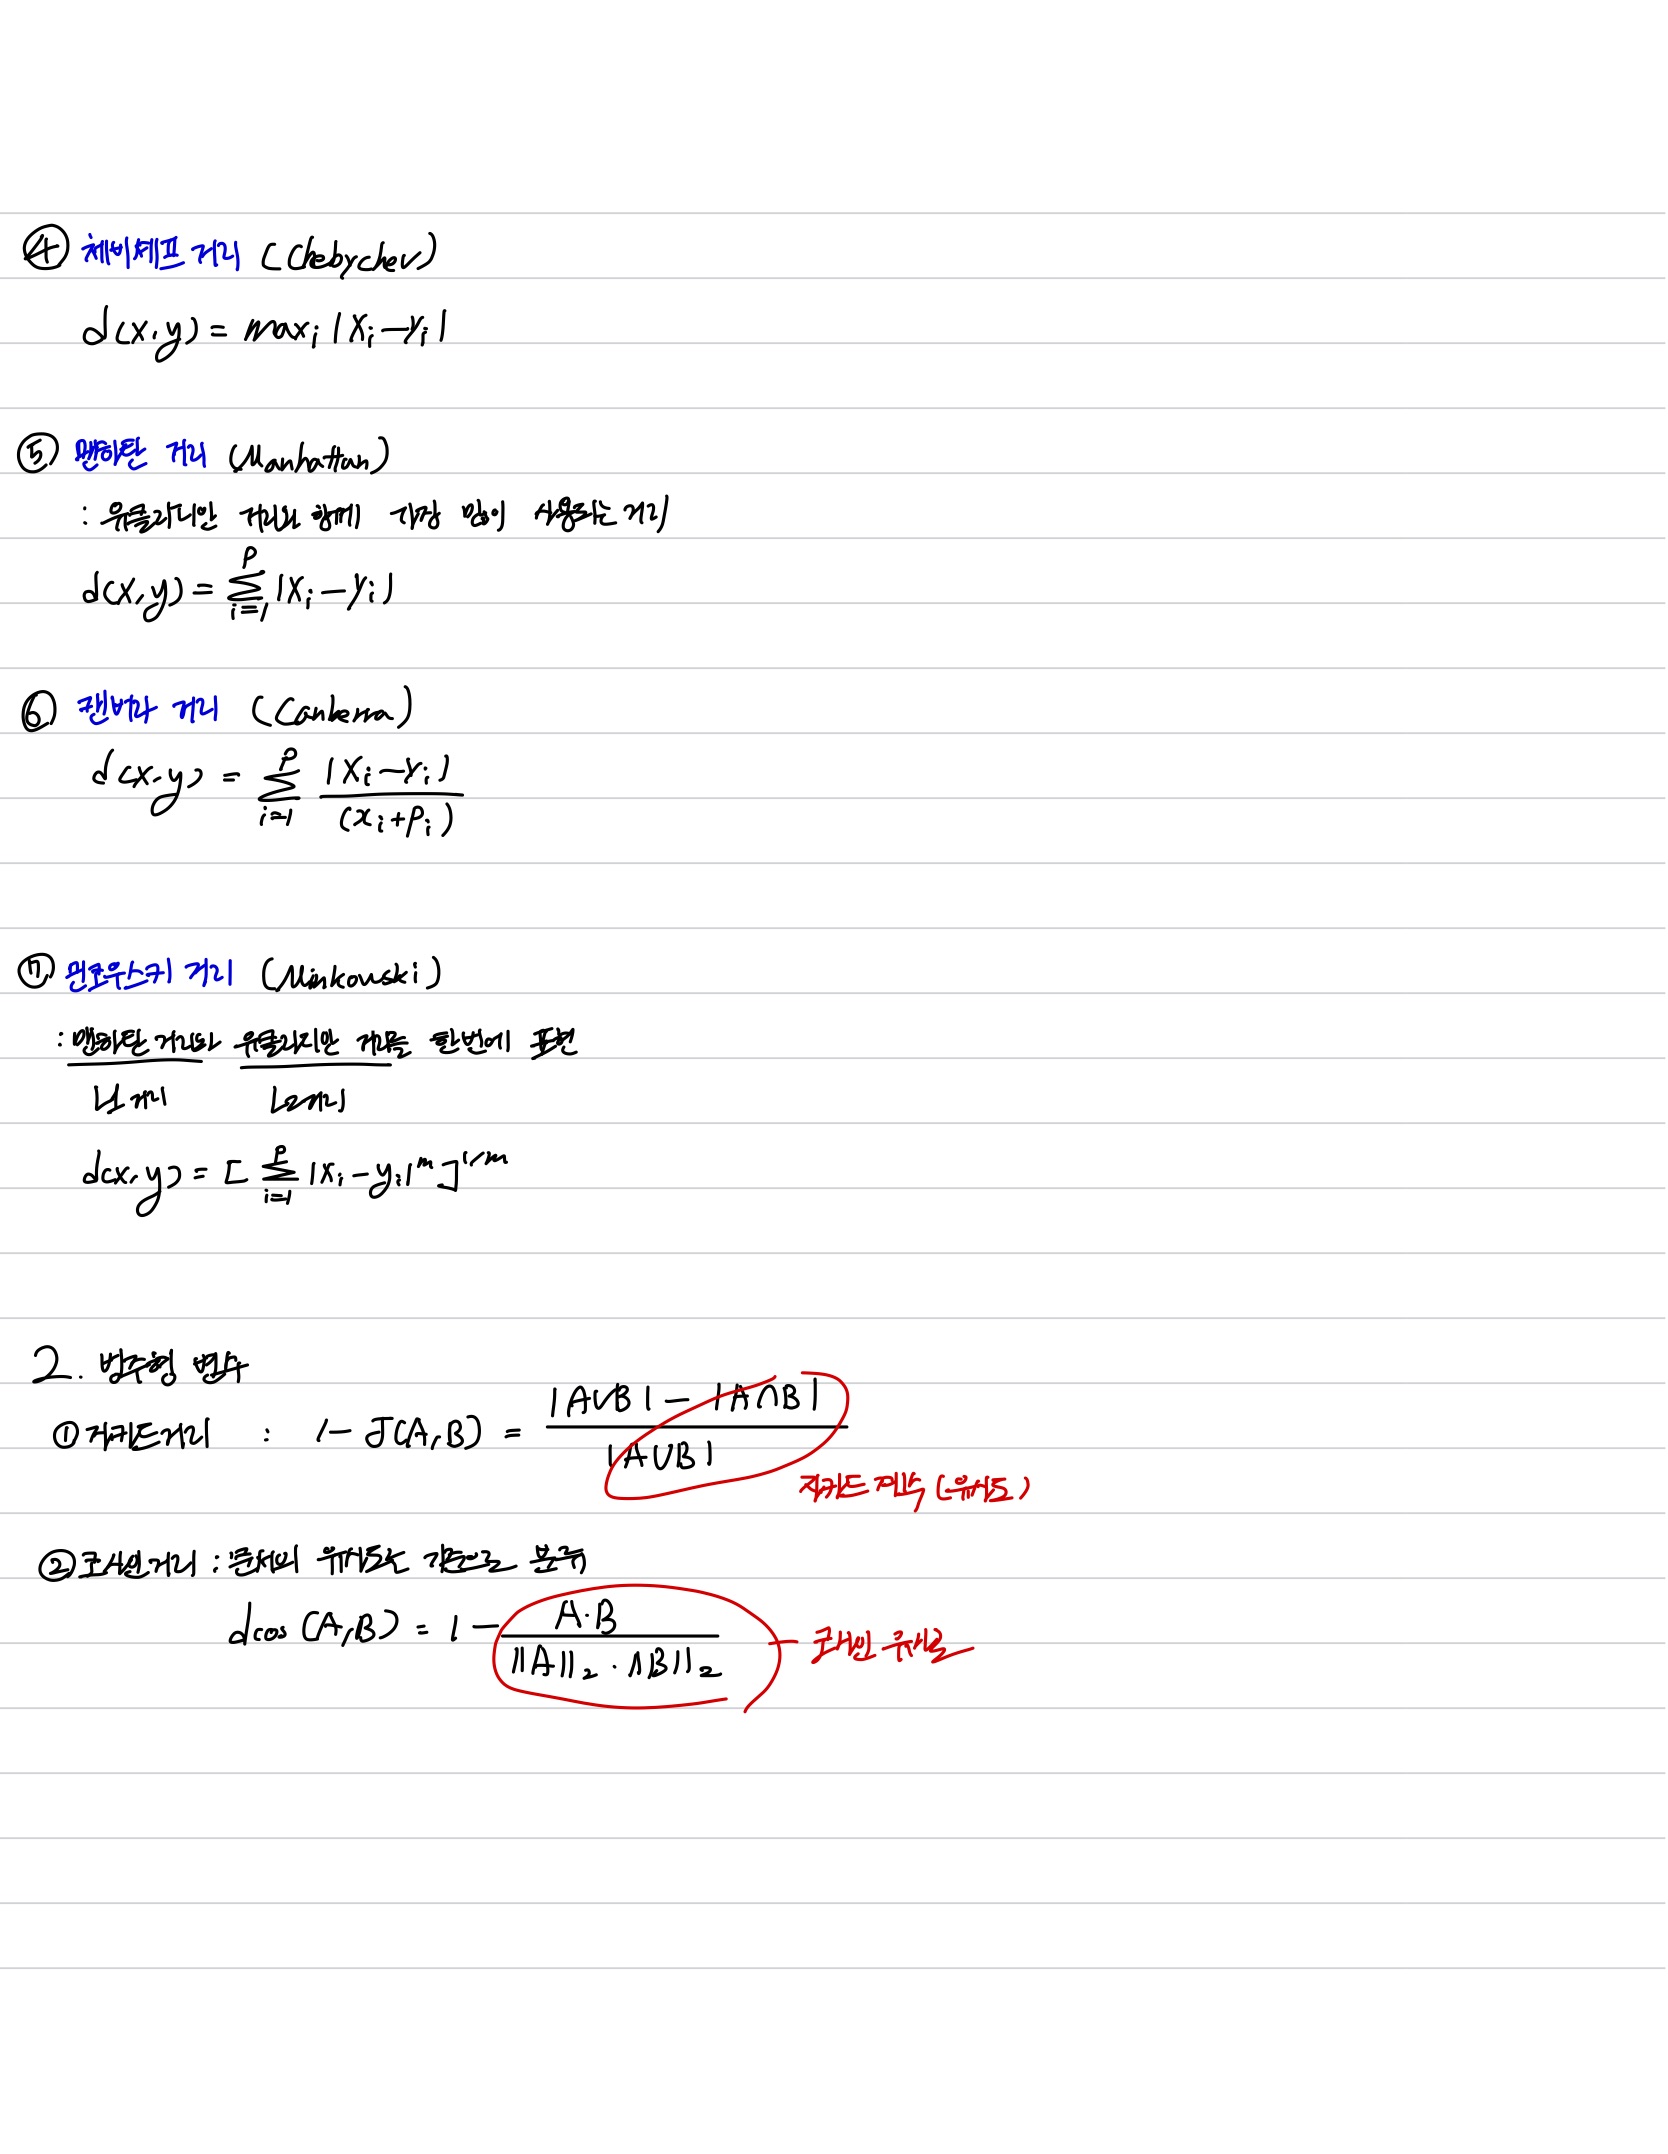 ④ 체비셰프 거리 (Chebychev)
d(x,y) = maxᵢ |xᵢ-yᵢ|
⑤ 맨하탄 거리 (Manhattan)
: 유클라디안 거리와 함께 가장 많이 사용되는 거리
d(x,y) = Σ_{i=1}^{p} |xᵢ-yᵢ|
⑥ 캔버라 거리 (Canberra)
d(x,y) = Σ_{i=1}^{p} |xᵢ-yᵢ| / (xᵢ+pᵢ)
⑦ 민코우스키 거리 (Minkowski)
: 맨하탄 거리와 유클리지안 거리를 한번에 표현
L1거리 L2거리
d(x,y) = [Σ_{i=1}^{p} |xᵢ-yᵢ|^m]^{1/m}
2. 범주형 변수
① 자카드거리 : 1 - J(A,B) = (|A∪B| - |A∩B|) / |A∪B|
자카드 지수 (유사도)
② 코사인거리 : 문서의 유사도로 기준으로 분류
dcos (A,B) = 1 - A·B / (||A||₂ · ||B||₂)
코사인 유사도